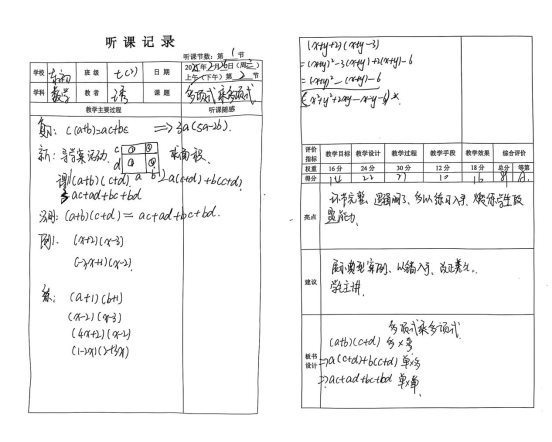 听课记录
听课节数：第1节
学校 东初 班级 七(2) 日期 2025年2月26日（周三）
上午（下午）第2节
学科 数学 教者 课题 多项式乘多项式
教学主要过程 听课随感
复习：c(a+b)=ac+bc ⇒ 3a(5a-2b).
新：导学案活动. c ① ② 求面积
d ③ ④
a b
(a+b)(c+d)=a(c+d)+b(c+d)
=ac+ad+bc+bd
(a+b)(c+d)=ac+ad+bc+bd.
例1. (x+2)(x-3)
(-3x+1)(x-2).
练： (a+1)(b+1)
(x-2)(x-3)
(4x+2)(x-2)
(1-2x)(2-13x)
(x+y+2)(x+y-3)
=(x+y)²-3(x+y)+2(x+y)-6
=(x+y)²-(x+y)-6
=x²+y²+2xy-x-y-6
评价指标 教学目标 教学设计 教学过程 教学手段 教学效果 综合评价
权重 16分 24分 30分 12分 18分 总分 等第
得分 14 22 27 10 16 89 A
亮点
环节完整，逻辑清，多以练习入手，锻炼学生
能力.
建议
展示典型案例，以错入手，改正意义。
学生主讲.
板书设计
多项式乘多项式
(a+b)(c+d) 多×多
⇒a(c+d)+b(c+d) 单×多
⇒ac+ad+bc+bd 单×单